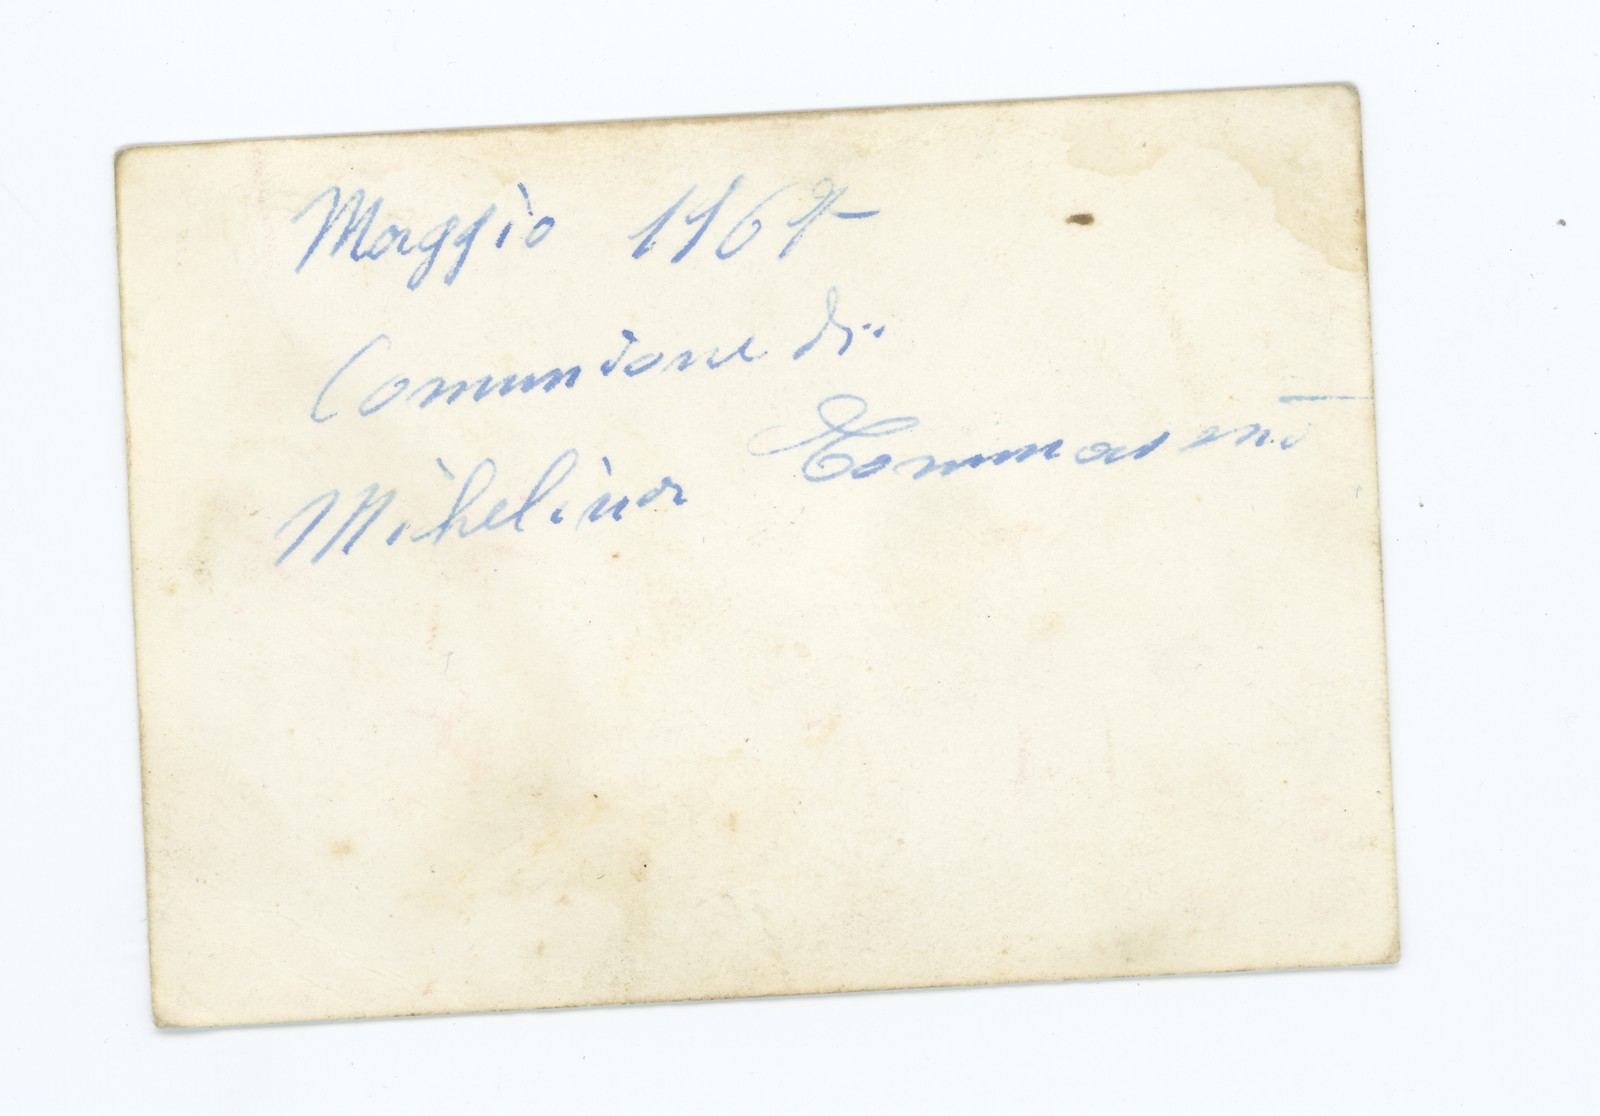 Maggio 1967
Comunione di
Michelina Tommaseni